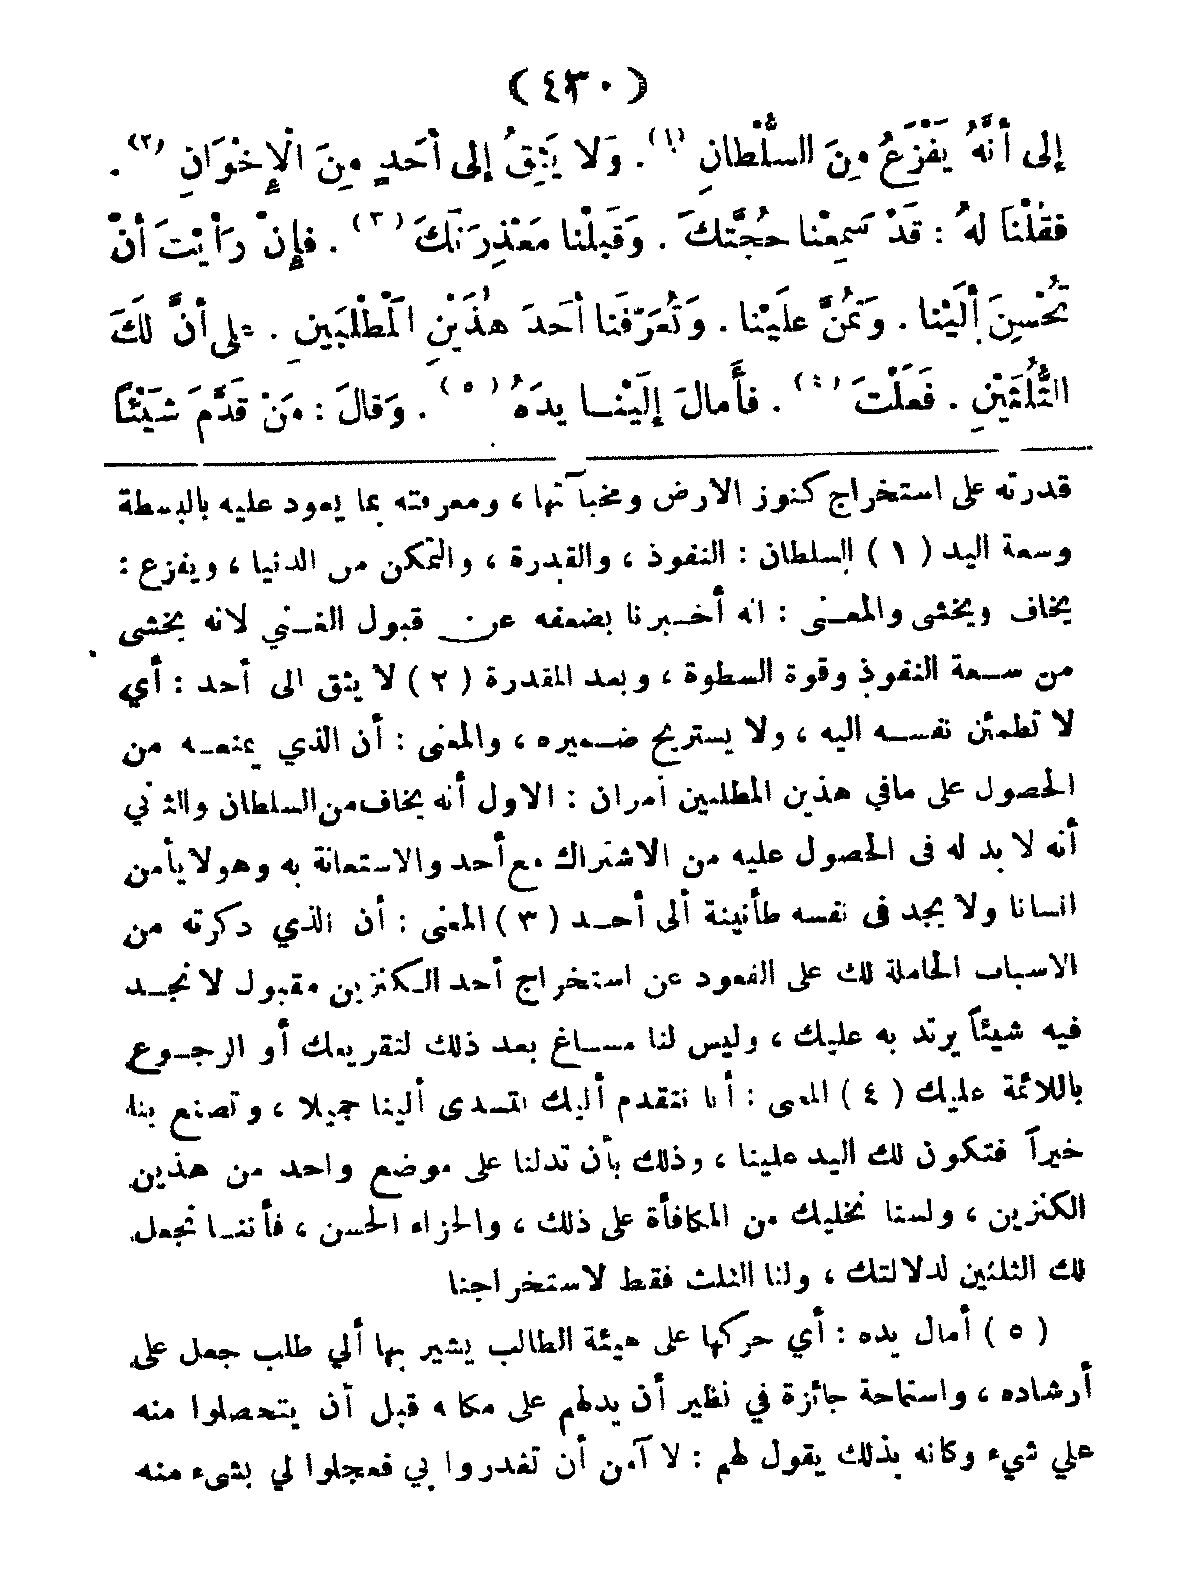 ( ٤٣٠ )
إلى أَنَّهُ يَفْزَعُ مِنَ السُّلْطانِ (١) . وَلا يَثِقُ إلى أَحَدٍ مِنَ الْإِخْوَانِ (٢) .
فقُلْنَا لهُ : قَدْ سَمِعْنا حُجَّتكَ . وَقَبِلْنا مَعْذِرَتَكَ (٣) . فإِنْ رَأَيْتَ أنْ
تُحْسِنَ إلَيْنا . وَتَمُنَّ علَيْنا . وَتُعَرِّفَنا أحَدَ هٰذَيْنِ الْمَطْلَبَيْنِ . على أنَّ لكَ
الثُّلُثَيْنِ . فَعَلْتَ (٤) . فأَمالَ إلَيْنا يدَهُ (٥) . وَقالَ : مَنْ قدَّمَ شيْئاً
قدرته على استخراج كنوز الارض ومخبآتها ، ومعرفته بما يعود عليه بالبسطة
وسعة اليد ( ١ ) السلطان : النفوذ ، والقدرة ، والتمكن من الدنيا ، ويفزع :
يخاف ويخشى والمعنى : انه أخبرنا بضعفه عن قبول الغنى لانه يخشى
من سعة النفوذ وقوة السطوة ، وبعد المقدرة ( ٢ ) لا يثق الى أحد : أي
لا تطمئن نفسه اليه ، ولا يستريح ضميره ، والمعنى : أن الذي يمنعه من
الحصول على مافي هذين المطلبين أمران : الاول أنه يخاف من السلطان والثاني
أنه لا بد له فى الحصول عليه من الاشتراك مع أحد والاستعانة به وهو لا يأمن
انسانا ولا يجد فى نفسه طأنينة ألى أحد ( ٣ ) المعنى : أن الذي ذكرته من
الاسباب الحاملة لك على القعود عن استخراج أحد الكنزين مقبول لا نجد
فيه شيئاً يرتد به عليك ، وليس لنا مساغ بعد ذلك لتقريعك أو الرجوع
باللائمة عليك ( ٤ ) المعنى : أنا نتقدم أليك لتسدى ألينا جميلا ، وتصنع بنا
خيراً فتكون لك اليد علينا ، وذلك بأن تدلنا على موضع واحد من هذين
الكنزين ، ولسنا نخليك من المكافأة على ذلك ، والجزاء الحسن ، فأننا نجعل
لك الثلثين لدلالتك ، ولنا الثلث فقط لاستخراجنا
( ٥ ) أمال يده : أي حركها على هيئة الطالب يشير بها ألي طلب جعل على
أرشاده ، واستماحة جائزة في نظير أن يدلهم على مكانه قبل أن يتحصلوا منه
علي شيء وكانه بذلك يقول لهم : لا آمن أن تغدروا بي فعجلوا لي بشىء منه